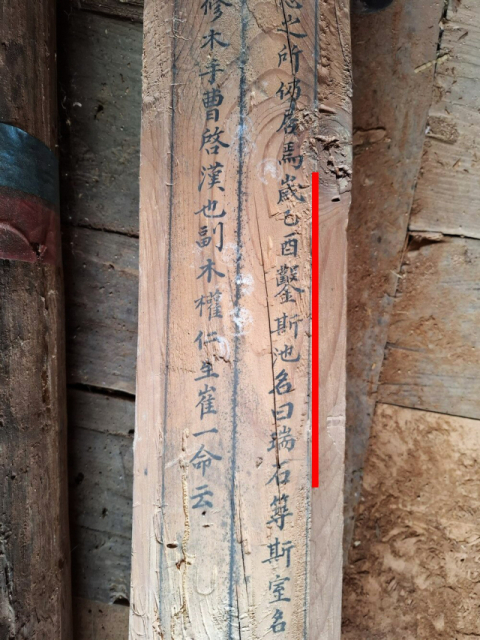 之所仿居焉歲己酉鑿斯池名曰瑞石築斯室名
修木手曹啓漢也副木權仁生崔一命云